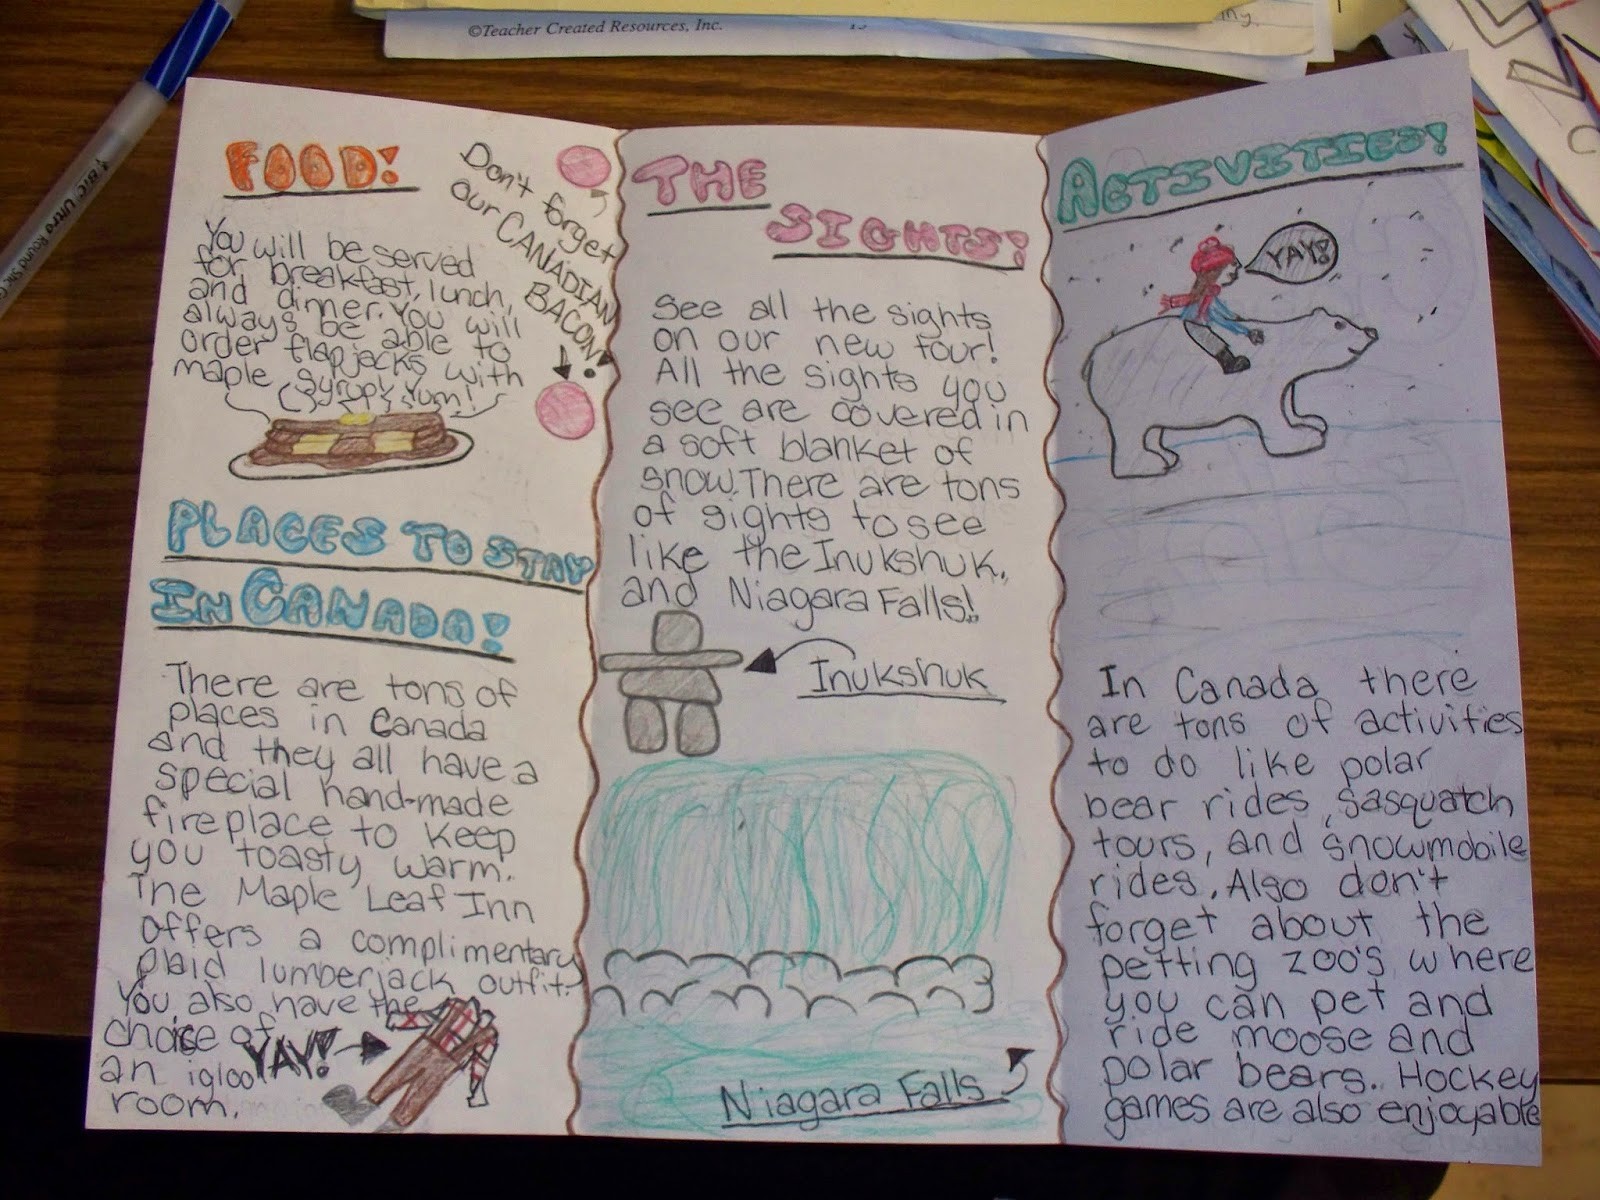 ©Teacher Created Resources, Inc.
FOOD!
You will be served
for breakfast, lunch,
and dinner. You will
always be able to
order flapjacks with
maple syrup! Yum!
Don't forget
our CANADIAN
BACON!
PLACES TO STAY
IN CANADA!
There are tons of
places in Canada
and they all have a
special hand-made
fireplace to keep
you toasty warm.
The Maple Leaf Inn
offers a complimentary
plaid lumberjack outfit.
You also have the
choice of
an igloo
room.
YAY!
THE
SIGHTS!
See all the sights
on our new tour!
All the sights you
see are covered in
a soft blanket of
snow. There are tons
of sights to see
like the Inukshuk,
and Niagara Falls!
Inukshuk
Niagara Falls
ACTIVITIES!
YAY!
In Canada there
are tons of activities
to do like polar
bear rides, sasquatch
tours, and snowmobile
rides. Also don't
forget about the
petting zoo's where
you can pet and
ride moose and
polar bears. Hockey
games are also enjoyable